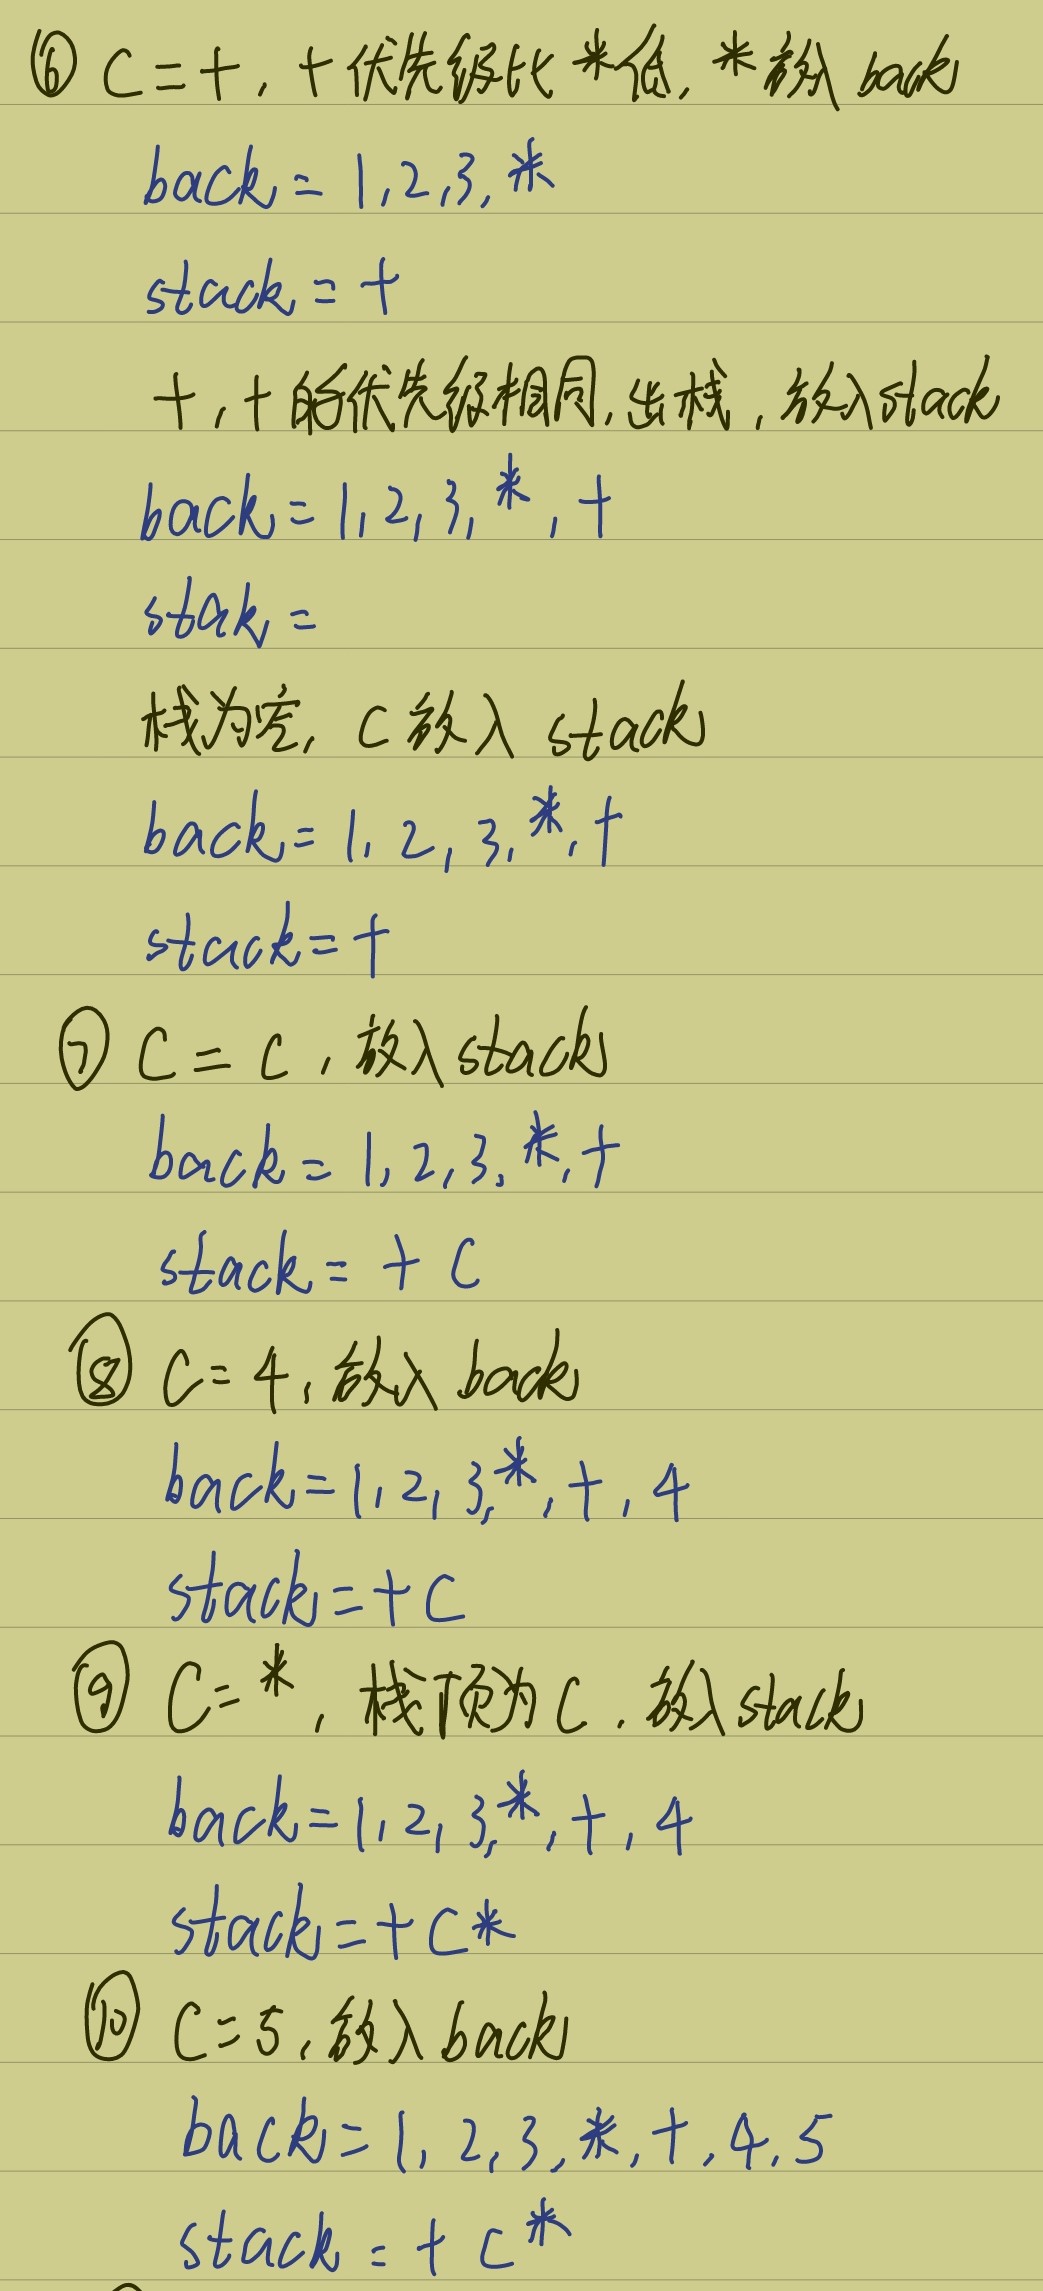 ⑥ C=+, +优先级比*低, *放入back
back = 1,2,3,*
stack = +
+,+的优先级相同,出栈,放入stack
back = 1,2,3,*,+
stak =
栈为空, C放入stack
back = 1,2,3,*,+
stack = +
⑦ C = (, 放入stack
back = 1,2,3,*,+
stack = + (
⑧ C=4, 放入back
back = 1,2,3,*,+,4
stack = + (
⑨ C=*, 栈顶为(, 放入stack
back = 1,2,3,*,+,4
stack = + ( *
⑩ C=5, 放入back
back = 1,2,3,*,+,4,5
stack = + ( *